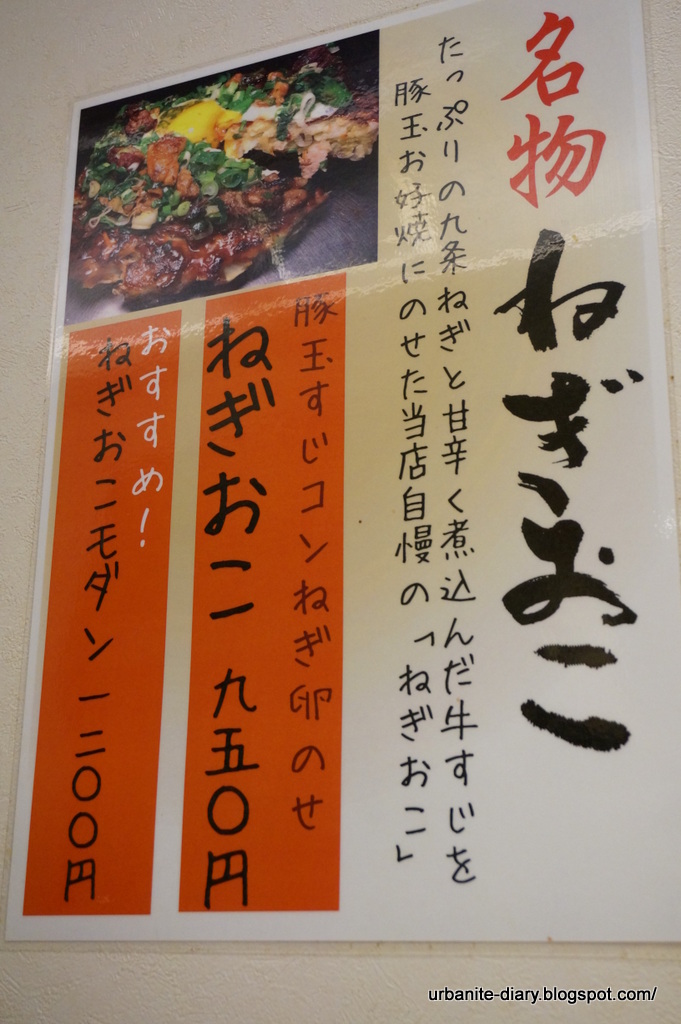 名物
ねぎおこ
たっぷりの九条ねぎと甘辛く煮込んだ牛すじを
豚玉お好焼にのせた当店自慢の「ねぎおこ」
豚玉すじコンねぎ卵のせ
ねぎおこ 九五〇円
おすすめ!
ねぎおこモダン 一二〇〇円
urbanite-diary.blogspot.com/